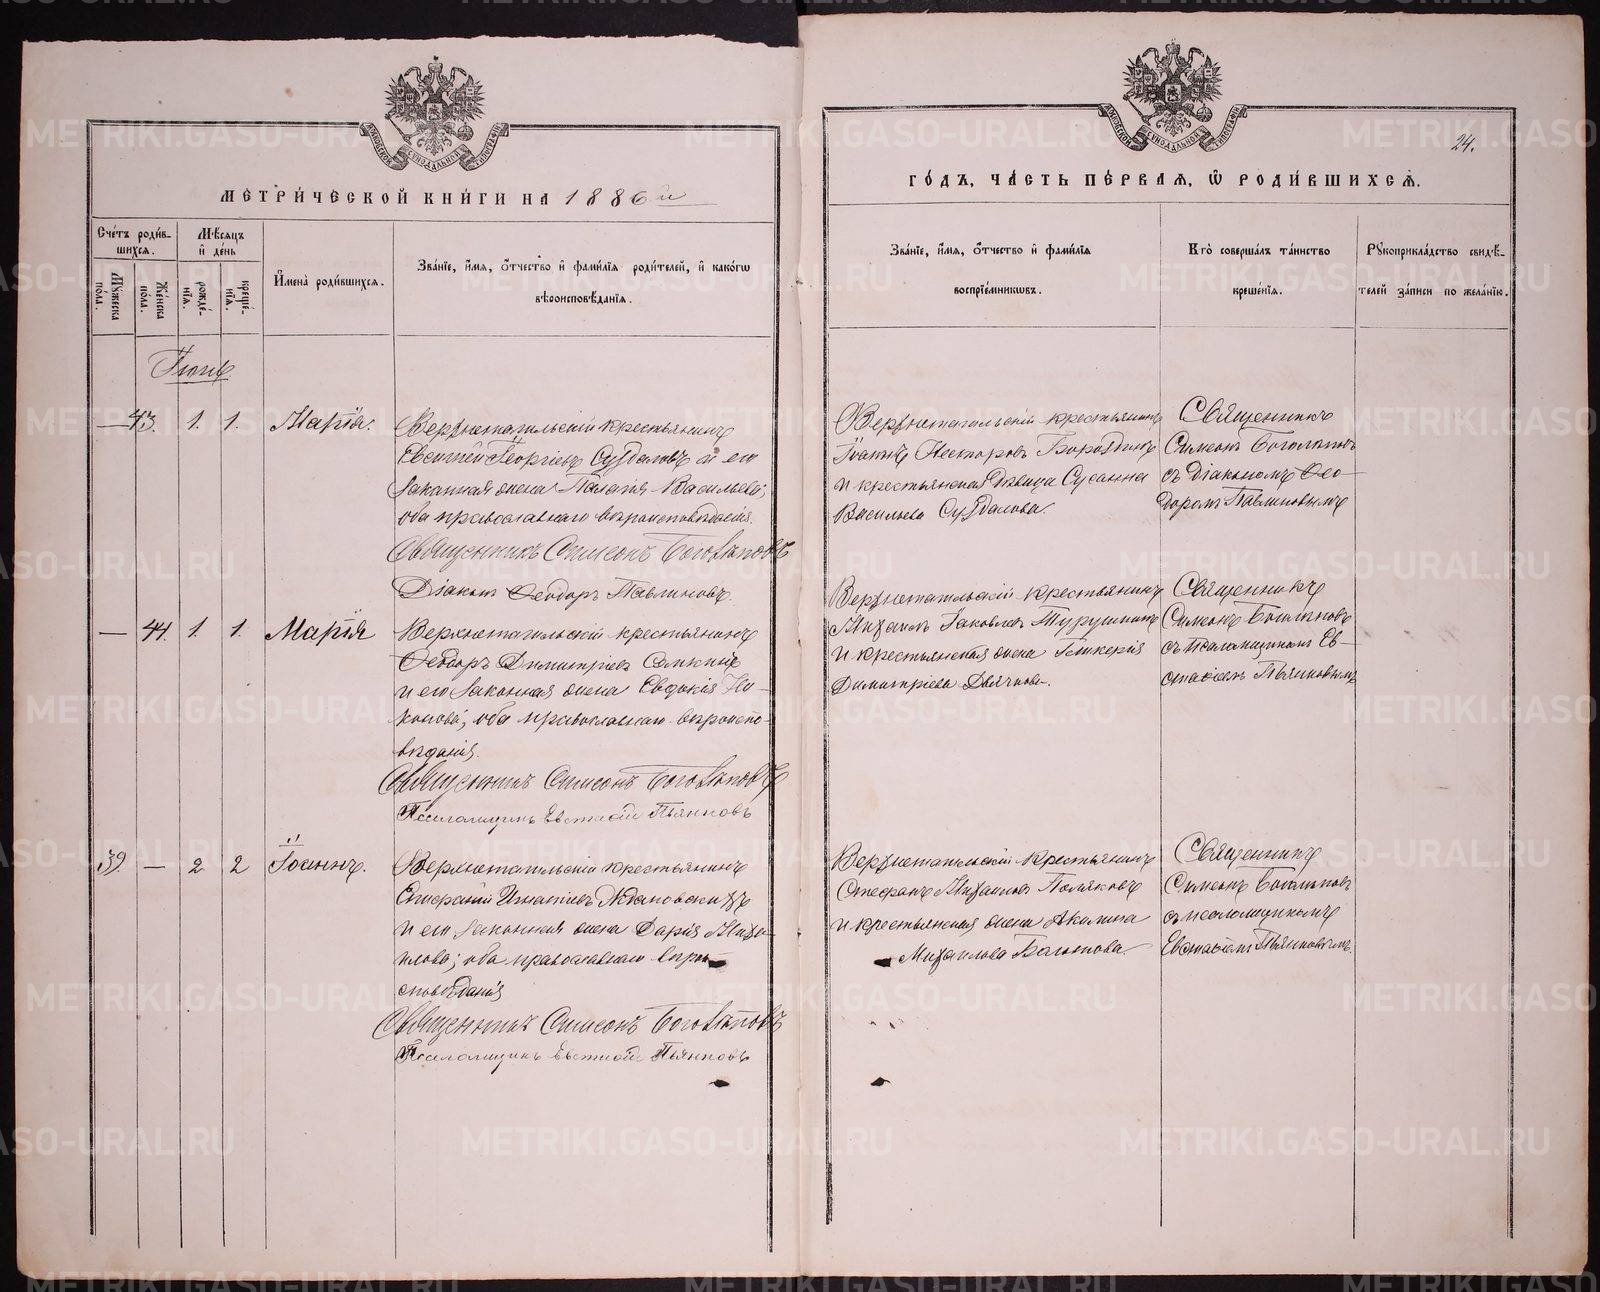 МЕТРИЧЕСКОЙ КНИГИ НА 1886й
ГОДЪ, ЧАСТЬ ПЕРВАЯ, Ѡ РОДИВШИХСЯ.
24.
Счетъ родив-
шихся.
Мѣсяцъ
и день
Мужеска
пола.
Женска
пола.
рожде-
нїя.
креще-
нїя.
Имена родившихся.
Званїе, имя, отчество и фамилїя родителей, и какогѡ
вѣроисповѣданїя.
Званїе, имя, отчество и фамилїя
воспрїемникѡвъ.
Кто совершалъ таинство
крещенїя.
Рукоприкладство свидѣ-
телей записи по желанїю.
Iюнь
— 43. 1. 1. Марія.
Верхнетагильскій крестьянинъ
Евсигній Георгіевъ Суздаловъ и его
законная жена Пелагія Васильева;
оба православнаго вѣроисповѣданія.
Священникъ Симеонъ Боголѣповъ
Діаконъ Ѳеодоръ Павлиновъ.
Верхнетагильскій крестьянинъ
Іоаннъ Несторовъ Бороздинъ
и крестьянская дѣвица Сусанна
Васильева Суздалова.
Священникъ
Симеонъ Боголѣповъ
съ діакономъ Ѳео-
доромъ Павлиновымъ
— 44. 1. 1. Марія
Верхнетагильскій крестьянинъ
Ѳеодоръ Димитріевъ
и его законная жена Евдокія Ни-
конова; оба православнаго вѣроиспо-
вѣданія.
Священникъ Симеонъ Боголѣповъ
Псаломщикъ Евстафій Пьянковъ
Верхнетагильскій крестьянинъ
Михаилъ Іаковлевъ
и крестьянская жена Гликерія
Димитріева Дьячкова.
Священникъ
Симеонъ Боголѣповъ
съ псаломщикомъ Ев-
стафіемъ Пьянковымъ
39. — 2 2 Іоаннъ.
Верхнетагильскій крестьянинъ
Игнатіевъ Ждановскихъ
и его законная жена Дарія Миха-
илова; оба православнаго вѣрои-
сповѣданія
Священникъ Симеонъ Боголѣповъ
Псаломщикъ Евстафій Пьянковъ
Верхнетагильскій крестьянинъ
Стефанъ Михаиловъ Поляковъ
и крестьянская жена Акилина
Михаилова
Священникъ
Симеонъ Боголѣповъ
съ псаломщикомъ
Евстафіемъ Пьянковымъ.
METRIKI.GASO-URAL.RU